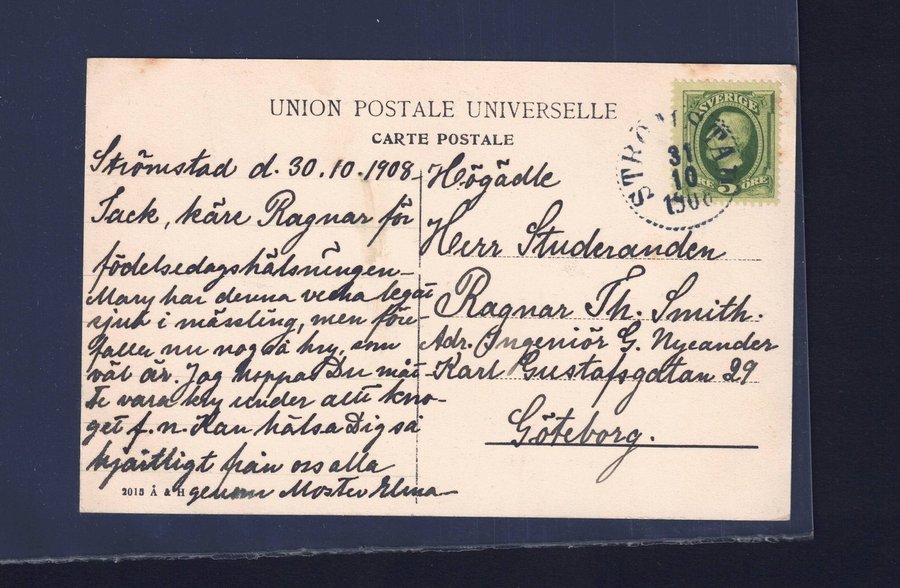 UNION POSTALE UNIVERSELLE
CARTE POSTALE
Strömstad d. 30.10.1908
Tack, käre Ragnar för
födelsedagshälsningen
Mary har denna vecka legat
sjuk i mässling, men före-
faller nu nog så kry, som
väl är. Jag hoppas Du måt-
te vara kry under allt kno-
get f.n. Kan hälsa Dig så
hjärtligt från oss alla
genom Moster Elma
2015 Å & H
Högädle
Herr Studeranden
Ragnar Th. Smith.
Adr. Ingeniör G. Nycander
Karl Gustafsgatan 29
Göteborg.
SVERIGE
5 ÖRE
STRÖMSTAD
31
10
1908